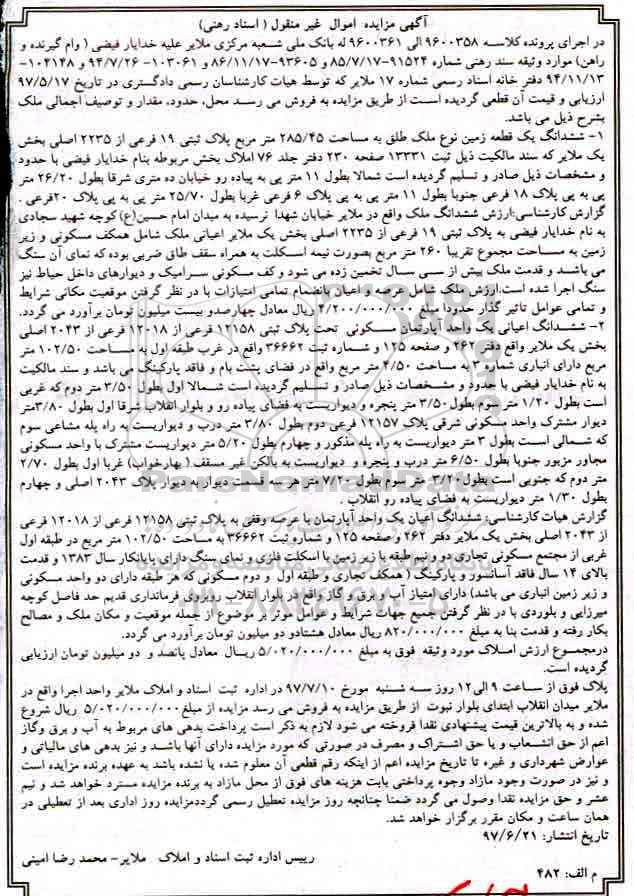 آگهی مزایده اموال غیر منقول ( اسناد رهنی)
در اجرای پرونده کلاسه ۹۶۰۰۳۵۸ الی ۹۶۰۰۳۶۱ له بانک ملی شعبه مرکزی ملایر علیه خدایار فیضی ( وام گیرنده و
راهن) موارد وثیقه سند رهنی شماره ۹۱۵۲۴-۸۵/۷/۱۷ و ۹۳۶۰۵-۸۶/۱۱/۱۷ و ۱۰۳۰۶۱- ۹۴/۷/۲۶ و ۱۰۴۱۴۸-
۹۴/۱۱/۱۳ دفتر خانه اسناد رسمی شماره ۱۷ ملایر که توسط هیات کارشناسان رسمی دادگستری در تاریخ ۹۷/۵/۱۷
ارزیابی و قیمت آن قطعی گردیده است از طریق مزایده به فروش می رسد محل، حدود، مقدار و توصیف اجمالی ملک
بشرح ذیل می باشد.
۱- ششدانگ یک قطعه زمین نوع ملک طلق به مساحت ۲۸۵/۴۵ متر مربع پلاک ثبتی ۱۹ فرعی از ۲۲۳۵ اصلی بخش
یک ملایر که سند مالکیت ذیل ثبت ۱۳۳۳۱ صفحه ۲۳۰ دفتر جلد ۷۶ املاک بخش مربوطه بنام خدایار فیضی با حدود
و مشخصات ذیل صادر و تسلیم گردیده است شمالا بطول ۱۱ متر پی به پیاده رو خیابان ده متری شرقا بطول ۲۶/۲۰ متر
پی به پی پلاک ۱۸ فرعی جنوبا بطول ۱۱ متر پی به پی پلاک ۶ فرعی غربا بطول ۲۵/۷۰ متر پی به پی پلاک ۲۰فرعی .
گزارش کارشناسی:ارزش ششدانگ ملک واقع در ملایر خیابان شهدا نرسیده به میدان امام حسین(ع)کوچه شهید سجادی
به نام خدایار فیضی به پلاک ثبتی ۱۹ فرعی از ۲۲۳۵ اصلی بخش یک ملایر اعیانی ملک شامل همکف مسکونی و زیر
زمین به مساحت مجموع تقریبا ۲۶۰ متر مربع بصورت نیمه اسکلت به همراه سقف طاق ضربی بوده که نمای آن سنگ
می باشد و قدمت ملک بیش از سی سال تخمین زده می شود و کف مسکونی سرامیک و دیوارهای داخل حیاط نیز
سنگ اجرا شده است،ارزش ملک شامل عرصه و اعیان بانضمام تمامی امتیازات با در نظر گرفتن موقعیت مکانی شرایط
و تمامی عوامل تاثیر گذار حدودا مبلغ ۴/۲۰۰/۰۰۰/۰۰۰ ریال معادل چهارصدو بیست میلیون تومان برآورد می گردد.
۲- ششدانگ اعیانی یک واحد آپارتمان مسکونی تحت پلاک ثبتی ۱۲۱۵۸ فرعی از ۱۲۰۱۸ فرعی از ۲۰۴۳ اصلی
بخش یک ملایر واقع دفتر ۲۶۲ و صفحه ۱۲۵ و شماره ثبت ۳۶۶۶۲ واقع در غرب طبقه اول به مساحت ۱۰۲/۵۰ متر
مربع دارای انباری شماره ۳ به مساحت ۲/۵۰ متر مربع واقع در فضای پشت بام و فاقد پارکینگ می باشد و سند مالکیت
به نام خدایار فیضی با حدود و مشخصات ذیل صادر و تسلیم گردیده است شمالا اول بطول ۳/۵۰ متر دوم که غربی
است بطول ۱/۲۰ متر سوم بطول ۳/۵۰ متر پنجره و دیواریست به فضای پیاده رو و بلوار انقلاب شرقا اول بطول ۳/۸۰متر
دیوار مشترک واحد مسکونی شرقی پلاک ۱۲۱۵۷ فرعی دوم بطول ۳/۸۰ متر درب و دیواریست به راه پله مشاعی سوم
که شمالی است بطول ۳ متر دیواریست به راه پله مذکور و چهارم بطول ۵/۲۰ متر دیواریست مشترک با واحد مسکونی
مجاور مزبور جنوبا بطول ۶/۵۰ متر درب و پنجره و دیواریست به بالکن غیر مسقف ( بهارخواب) غربا اول بطول ۲/۷۰
متر دوم که جنوبی است بطول۳/۲۰ متر سوم بطول ۷/۲۰ متر هر سه قسمت دیوار به دیوار پلاک ۲۰۴۳ اصلی و چهارم
بطول ۱/۳۰ متر دیواریست به فضای پیاده رو انقلاب .
گزارش هیات کارشناسی: ششدانگ اعیان یک واحد آپارتمان با عرصه وقفی به پلاک ثبتی ۱۲۱۵۸ فرعی از ۱۲۰۱۸ فرعی
از ۲۰۴۳ اصلی بخش یک ملایر دفتر ۲۶۲ و صفحه ۱۲۵ و شماره ثبت ۳۶۶۶۲ به مساحت ۱۰۲/۵۰ متر مربع در طبقه اول
غربی از مجتمع مسکونی تجاری دو و نیم طبقه با زیر زمین با اسکلت فلزی و نمای سنگ دارای پایانکار سال ۱۳۸۳ و قدمت
بالای ۱۴ سال فاقد آسانسور و پارکینگ ( همکف تجاری و طبقه اول و دوم مسکونی که هر طبقه دارای دو واحد مسکونی
و زیر زمین انباری می باشد) دارای امتیاز آب و برق و گاز واقع در بلوار انقلاب روبروی فرمانداری قدیم حد فاصل کوچه
میرزایی و بلوردی با در نظر گرفتن جمیع جهات شرایط و عوامل موثر بر موضوع از جمله موقعیت و مکان ملک و مصالح
بکار رفته و قدمت بنا به مبلغ ۸۲۰/۰۰۰/۰۰۰ ریال معادل هشتادو دو میلیون تومان برآورد می گردد.
درمجموع ارزش املاک مورد وثیقه فوق به مبلغ ۵/۰۲۰/۰۰۰/۰۰۰ ریال معادل پانصد و دو میلیون تومان ارزیابی
گردیده است.
پلاک فوق از ساعت ۹ الی۱۲ روز سه شنبه مورخ ۹۷/۷/۱۰ در اداره ثبت اسناد و املاک ملایر واحد اجرا واقع در
ملایر میدان انقلاب ابتدای بلوار نبوت از طریق مزایده به فروش می رسد مزایده از مبلغ۵/۰۲۰/۰۰۰/۰۰۰ ریال شروع
شده و به بالاترین قیمت پیشنهادی نقدا فروخته می شود لازم به ذکر است پرداخت بدهی های مربوط به آب و برق وگاز
اعم از حق انشعاب و یا حق اشتراک و مصرف در صورتی که مورد مزایده دارای آنها باشد و نیز بدهی های مالیاتی و
عوارض شهرداری و غیره تا تاریخ مزایده اعم از اینکه رقم قطعی آن معلوم شده یا نشده باشد به عهده برنده مزایده است
و نیز در صورت وجود مازاد وجوه پرداختی بابت هزینه های فوق از محل مازاد به برنده مزایده مسترد خواهد شد و نیم
عشر و حق مزایده نقدا وصول می گردد ضمنا چنانچه روز مزایده تعطیل رسمی گرددمزایده روز اداری بعد از تعطیلی در
همان ساعت و مکان مقرر برگزار خواهد شد.
تاریخ انتشار: ۹۷/۶/۲۱
رییس اداره ثبت اسناد و املاک ملایر- محمد رضا امینی
م الف: ۴۸۲